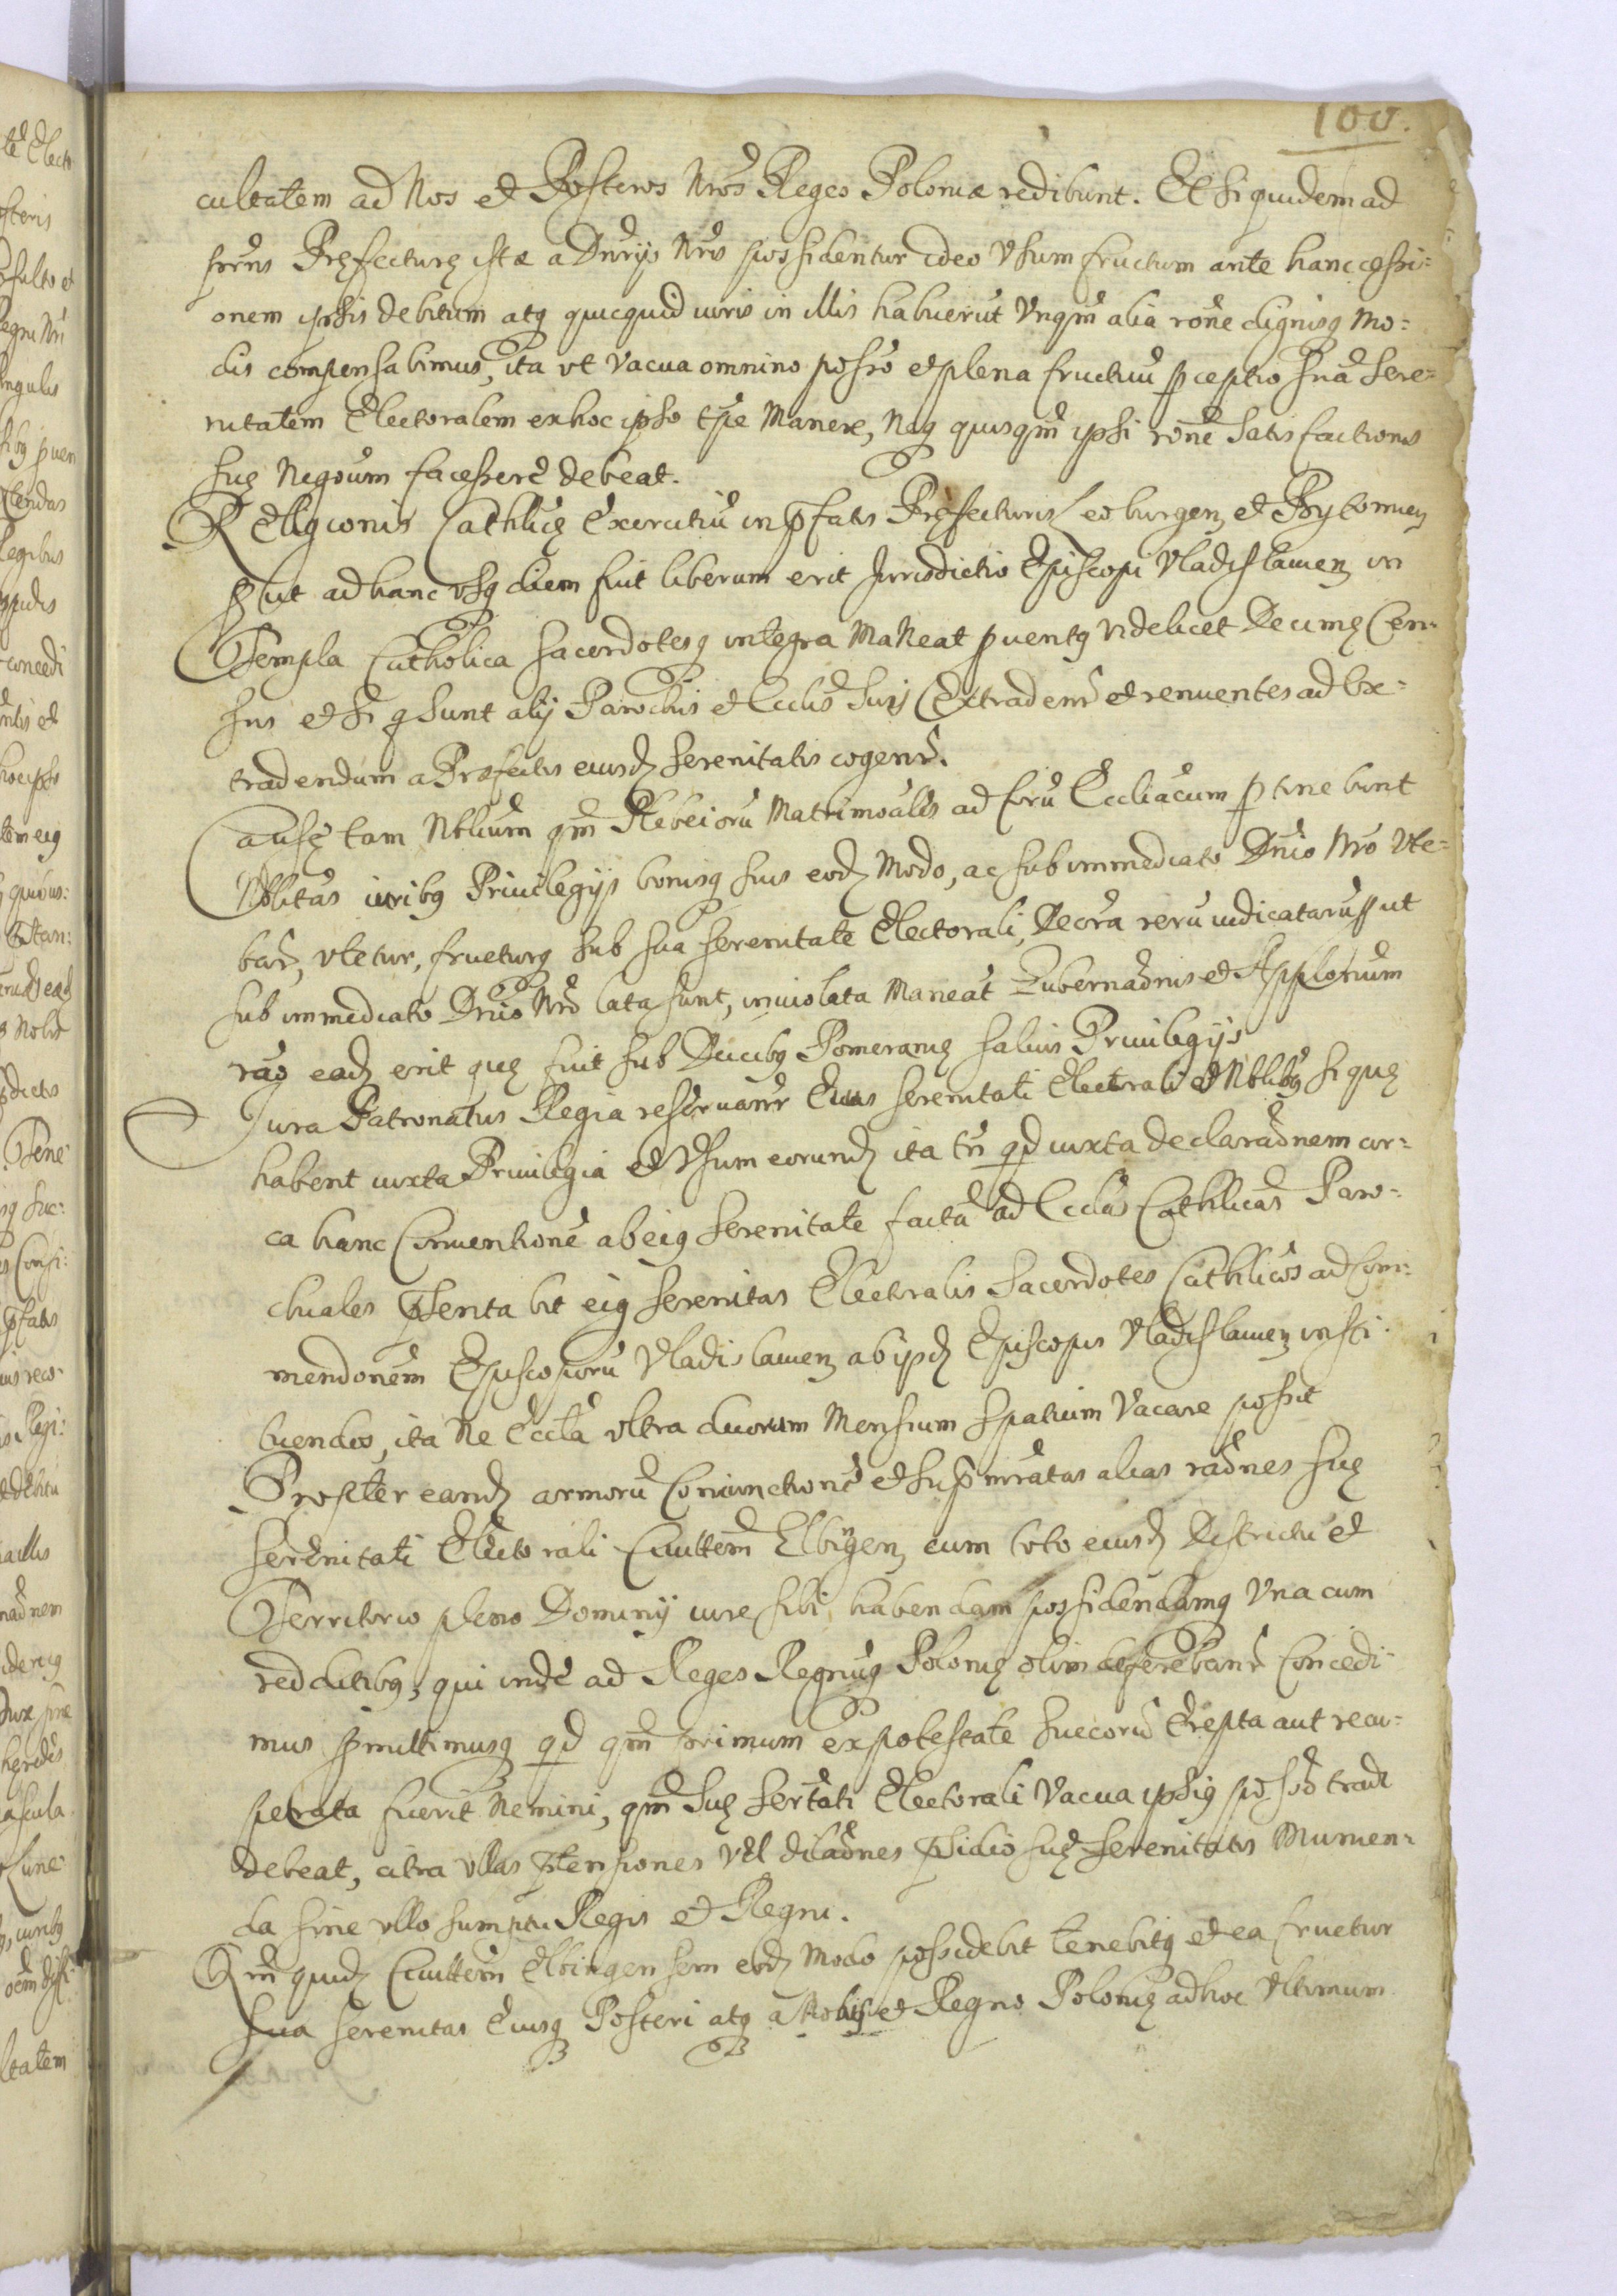 100.
cultatem ad Nos et Posteros Nrōs Reges Poloniæ redibunt. Et siquidem ad
pręns Pręfecturę istæ a Dnrijs Nris possidentur ideo Vsum fructum ante hanc cessi=
onem ipsis debitum atq quicquid iuris in illis habuerūt Vnqm̄ alia rōne dignisq Mo=
dis compensabimus, ita vt Vacua omnino possō et plena fructuū pceptio Suā Sere=
nitatem Electoralem ex hoc ipso tp̄e Manere, Neq quisqm̄ ipsi rōnē Satisfactionis
suę Negoūm facessere debeat.
REligionis Cathlicę Exercitiū in pfatis Pręfecturis Leoburgen et Bytomien
put ad hanc vsq diem fuit liberum erit Jurisdictio Episcopi Vladislauien in
Templa Catholica Sacerdotesq integra MaNeat puentq videlicet Decimę Cen=
sus et Si q sunt alij Parochis et Ecclis Suis Extradenr̄ et renuentes ad Ex=
tradendum a Præfectis eiusd Serenitatis cogenr̄.
Causę tam Nblium qm̄ Plebeiorū Matrimoāles ad forū Eccliacum ptinebunt
Nblitas iuribq Priuilegijs bonisq suis eod Modo, ac sub immediato Dnio Nro Vte=
bar̄, vtetur, frueturq sub sua Serenitate Electorali, Decrā rerū iudicatarū put
sub immediato Dnio Nrō lata sunt, inuiolata Maneāt Gubernadnis et Applonūm
rāo ead erit quę fuit sub Ducibq Pomeranię saluis Priuilegijs
Jura Patronatus Regia reseruanr̄ Eius Serenitati Electorali et Nblibq si quę
habent iuxta Priuilegia et Vsum eorund ita tn̄ qd iuxta declaradnem cir=
ca hanc Conuentionē ab eiq Serenitate factā ad Ecclas Cathlicas Paro=
chiales psentabit eiq Serenitas Electoralis Sacerdotes Cathlicos ad Com=
mendonem Episcoporū Vladislauien ab ijsd Episcopis Vladislauien insti=
tuendos, ita Ne Eccla vltra duorum Mensium Spatium Vacare possit
Propter eand armorū Coniunctionē et sup mrātas alias radnes suę
Serenitati Electorali Ciuittem Elbigen cum toto eiusd Districtu et
Territorio pleno Dominij iure sibi habendam possidendamq Vna cum
redditibq, qui inde ad Reges Regniq Polonię olim deferebanr̄ Concedi=
mus pmittimusq qd qm̄ primum ex potestate Suecorū Erepta aut recu=
perata fuerit Nemini, qm̄ Suę Sertāti Electorali Vacua ipsiq possō tradi
debeat, citra vllas ptensiones Vel diladnes psidio suę Serenitatis Munien=
da sine vllo sumptu Regis et Regni.
Qm̄ quid Ciuittem Elbingensem eod Modo possidebit tenebitq et ea fruetur
Sua Serenitas Eiusq Posteri atq a Nobis et Regno Polonię ad hoc Vltimum